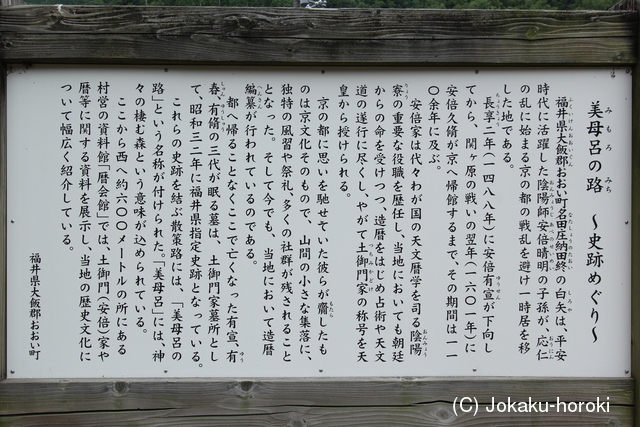 美母呂の路 ～史跡めぐり～
福井県大飯郡おおい町名田庄納田終の白矢は、平安
時代に活躍した陰陽師安倍晴明の子孫が、応仁
の乱に始まる京の都の戦乱を避け一時居を移
した地である。
長享二年(一四八八年)に安倍有宣が下向し
てから、関ヶ原の戦いの翌年(一六〇一年)に
安倍久脩が京へ帰館するまで、その期間は一一
〇余年に及ぶ。
安倍家は代々わが国の天文暦学を司る陰陽
寮の重要な役職を歴任し、当地においても朝廷
からの命を受けつつ、造暦をはじめ占術や天文
道の遂行に尽くし、やがて土御門家の称号を天
皇から授けられる。
京の都に思いを馳せていた彼らが齎したも
のは京文化そのもので、山間の小さな集落に、
独特の風習や祭礼、多くの社群が残されること
となった。そして今でも、当地において造暦
編纂が行われているのである。
都へ帰ることなくここで亡くなった有宣、有
春、有脩の三代が眠る墓は、土御門家墓所とし
て、昭和三二年に福井県指定史跡となっている。
これらの史跡を結ぶ散策路には、「美母呂の
路」という名称が付けられた。「美母呂」には、神
々の棲む森という意味が込められている。
ここから西へ約六〇〇メートルの所にある
村営の資料館「暦会館」では、土御門(安倍)家や
暦等に関する資料を展示し、当地の歴史文化に
ついて幅広く紹介している。
福井県大飯郡おおい町
(C) Jokaku-horoki